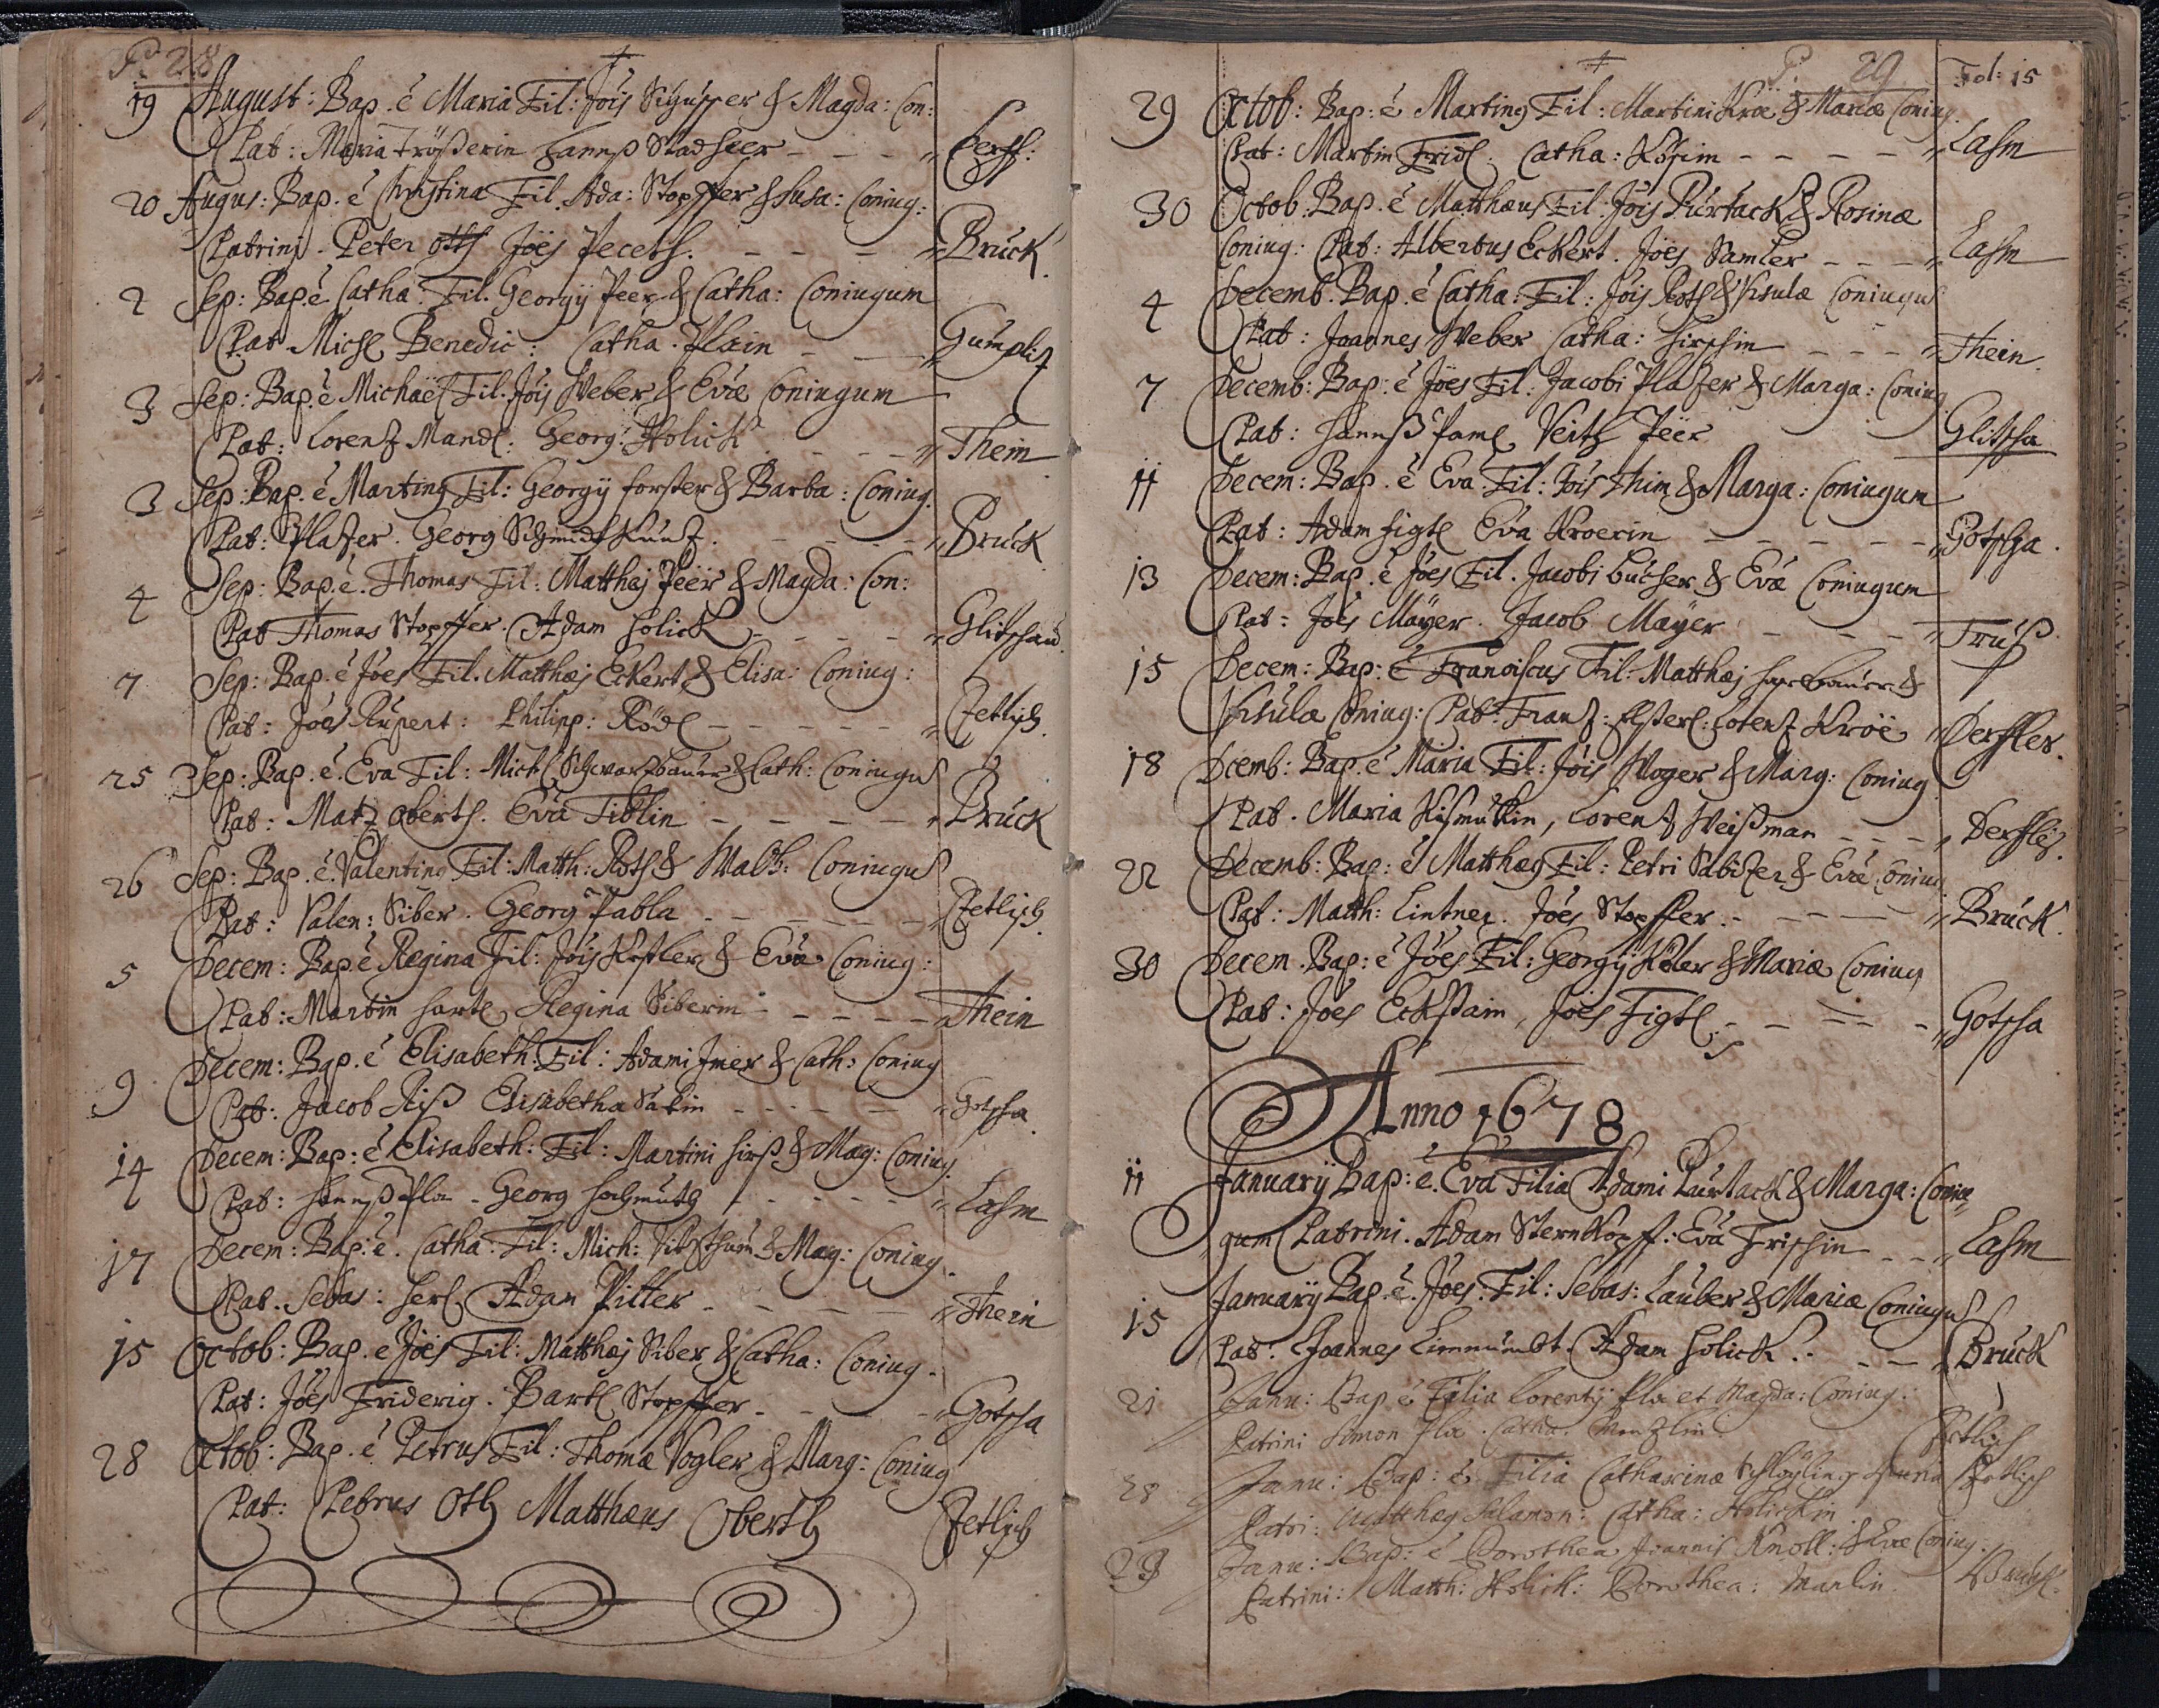 P. 28
19 August: Bap. é Maria Fil: Jõis Schusster & Magda: Con:
Pat: Maria Trößerin Hannß Stadherr - - - " Derff:
20 Augus: Bap. é Christina Fil. Ada: Stopffer & Susa: Coniug:
Patrini. Peter Oth Jões Peceth. - - - " Bruck.
2 Sep: Bap. é Catha: Fil. Georgÿ Peer & Catha: Coniugum
Pat Michl Benedic: Catha. Plain - - " Gumplitz
3 Sep: Bap. é Michaël Fil. Jõis Weber & Evæ Coniugum
Pat: Lorentz Mandl: Georg: Holick - - - " Thein
3 Sep: Bap. é Martinus Fil: Georgÿ Forster & Barba: Coniug.
Pat: Platzer. Georg Schmidt Kuntz. - - - " Bruck
4 Sep: Bap. é. Thomas Fil: Matthæj Peër & Magda: Con:
Pat Thomas Stopffer. Adam Holick - - - " Glitschau.
7 Sep: Bap. é Jões Fil. Matthæj Eckert & Elisa: Coniug:
Pat: Jões Rupert: Philipp: Rödl - - - - " Zetlisch.
25 Sep: Bap. é. Eva Fil: Michl Schwartzbauer & Cath: Coniugu
Pat: Matz Oberth. Eva Tiblin - - - - " Bruck
26 Sep: Bap. é. Valentinus Fil: Matth: Roth & Walb: Coniugu
Pat: Valen: Siber. Georg Pabla - - - - - " Zetlisch.
5 Decem: Bap. é Regina Fil: Jõis & Evæ Coniug:
Pat: Martin Hartl Regina Siberin - - - - " Thein
9 Decem: Bap. é Elisabeth: Fil: Adami Jmer & Cath: Coniug
Pat: Jacob Riß Elisabetha - - - - " Gotscha.
14 Decem: Bap: é Elisabeth: Fil: Martini Hirß & Mag: Coniug.
Pat: Hannß Pla - Georg Hochmuth - - - - " Lahm
17 Decem: Bap: é. Catha: Fil: Mich: & Mag: Coniug.
Pat. Sebas: Herl Adam Pitter - - - - " Thein
15 Octob: Bap. é Jões Fil: Matthæj Siber & Catha: Coniug.
Pat: Jões Friderig. Bartl Stopffer - - - " Gotscha
28 Octob: Bap. é Petrus Fil: Thomæ Vogler & Marg: Coniug
Pat: Petrus Oth Matthæus Oberth Zetlisch
P. 29 Fol: 15
29 Octob: Bap: é Martinus Fil: Martini Kroe & Mariæ Coniug.
Pat: Martin Fridl. Catha: - - - - " Lahm
30 Octob. Bap. é Matthæus Fil: Jõis Purtack & Rosinæ
Coniug: Pat: Albertus Eckert. Jões Samler - - - " Lahm
4 Decemb. Bap. é Catha: Fil: Jõis Roth & Ursulæ Coniugu
Pat: Joannes Weber Catha: Hirschin - - - " Thein.
7 Decemb: Bap: é Jões Fil: Jacobi Platzer & Marga: Coniug
Pat: Hannß Paml Veith Peër Glitscha
11 Decem: Bap. é Eva Fil: Jõis Thim & Marga: Coniugum
Pat: Adam Figtl Eva Kroerin - - - - - " Gotscha.
13 Decem: Bap. é Jões Fil. Jacobi Bucher & Evæ Coniugum
Pat: Jões Mayer. Jacob Mayer - - - " Truß.
15 Decem: Bap: é Franciscus Fil: Matthæj &
Ursula Coniug: Pat: Frantz: Lorentz Kroë " Derffles.
18 Dcemb: Bap. é Maria Fil: Jõis Woger & Marg: Coniug
Pat. Maria, Lorentz Weißman - - - " Derfflis.
22 Decemb: Bap: é Matthæus Fil: Petri Sabitzer & Evæ Coniug
Pat: Matth: Lintner. Jões Stopffer. - - - - " Bruck.
30 Decem. Bap: é Jões Fil: Georgÿ & Mariæ Coniug
Pat: Jões Eckstain, Jões Figtl. - - - - " Gotscha
Anno 1678
11 Januarÿ Bap: é. Eva Filia Adami Purtack & Marga: Coniu
gum Patrini. Adam Sternkopff: Eva Frischin - - " Lahm
15 Januarÿ Bap. é. Jões. Fil: Sebas: Lauber & Mariæ Coniugu
Pat: Joannes. Adam Holick. - - - " Bruck
21 Janu: Bap é Filia Lorentÿ Pla et Magda: Coniug:
Patrini Simon Pla. Catha. Mentzlin Zetlisch
28 Janu: Bap: é Filia Catharinæ Zetlisch
Patri: Matthæus Salamon: Catha: Holickin
29 Janu: Bap: é Dorothea Joannis Knoll: & Evæ Coniug.
Patrini: Matth: Holick: Dorothea: Manlin. Bruck.